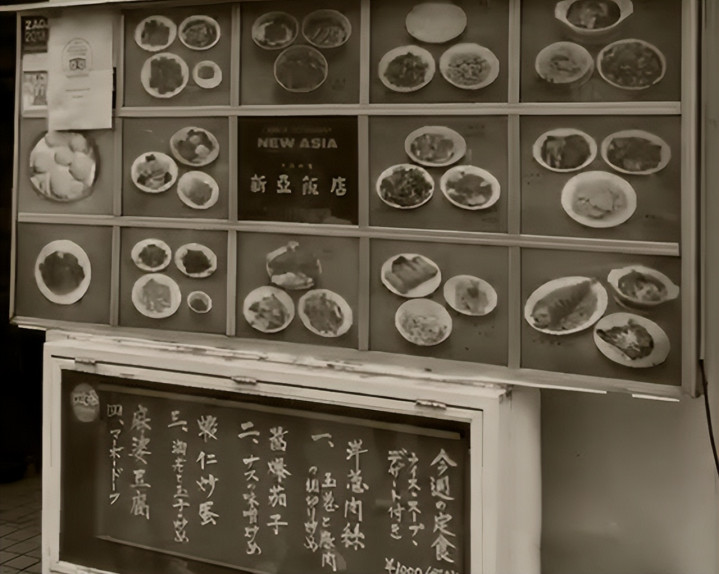 NEW ASIA
新亞飯店
今週の定食
ライス・スープ、
デザート付き
¥1000
一、洋葱肉絲
玉葱と豚肉
の細切り炒め
二、醤爆茄子
ナス味噌炒め
三、蝦仁炒蛋
海老と玉子炒め
四、麻婆豆腐
マーボードーフ